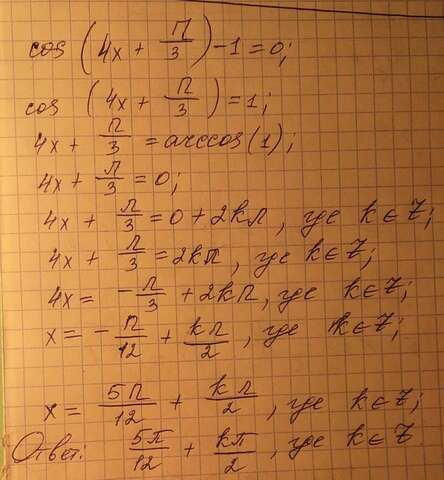 cos(4x + П/3) - 1 = 0;
cos (4x + П/3) = 1;
4x + П/3 = arccos(1);
4x + π/3 = 0;
4x + π/3 = 0 + 2kπ, где k ∈ Z;
4x + π/3 = 2kП, где k ∈ Z;
4x = -π/3 + 2kП, где k ∈ Z;
x = -П/12 + kП/2, где k ∈ Z;
x = 5П/12 + kπ/2, где k ∈ Z;
Ответ: 5π/12 + kπ/2, где k ∈ Z